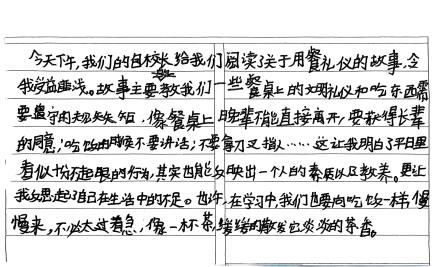 今天下午，我们的校长给我们阅读了关于用餐礼仪的故事，令
我受益匪浅。故事主要教我们一些餐桌上的文明礼仪和吃东西需
要遵守的知识，像餐桌上晚辈不能直接离开，要获得长辈
的同意；吃饭的时候不要讲话；不要拿刀叉指人……这让我明白了平日里
看似十分不起眼的行为，其实也能反映出一个人的素质以及教养。更让
我反思起了自己在生活中的不足。也许，在学习中，我们也要向吃饭一样，慢
慢来，不必太过着急，像一杯茶，缓缓的散发它淡淡的茶香。